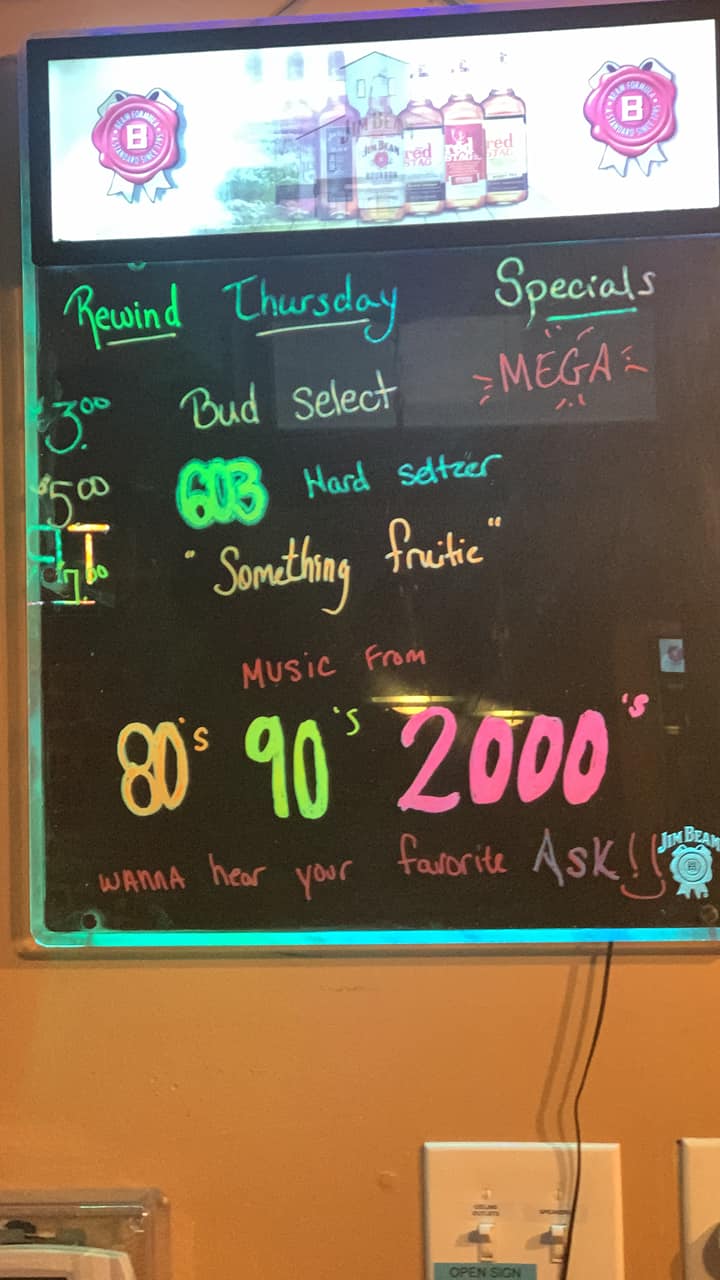 BEAM FORMULA
B
A STANDARD SINCE 1795
JIM BEAM
JIM BEAM
BOURBON
red STAG
red STAG
BEAM FORMULA
B
A STANDARD SINCE 1795
Rewind Thursday Specials
MEGA
$3.00 Bud Select
$5.00 603 Hard seltzer
$7.00 "Something fruitie"
Music From
80's 90's 2000's
WANNA hear your favorite Ask!!
JIM BEAM
B
CEILING
OUTLETS
SPEAKERS
OPEN SIGN